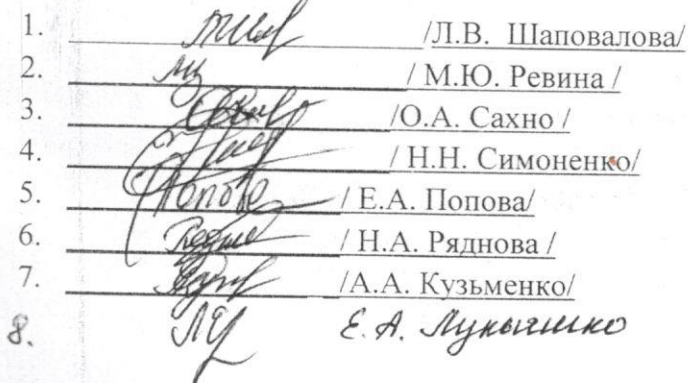 1. /Л.В. Шаповалова/
2. / М.Ю. Ревина /
3. /О.А. Сахно /
4. / Н.Н. Симоненко/
5. / Е.А. Попова/
6. / Н.А. Ряднова /
7. /А.А. Кузьменко/
8. Е. А.